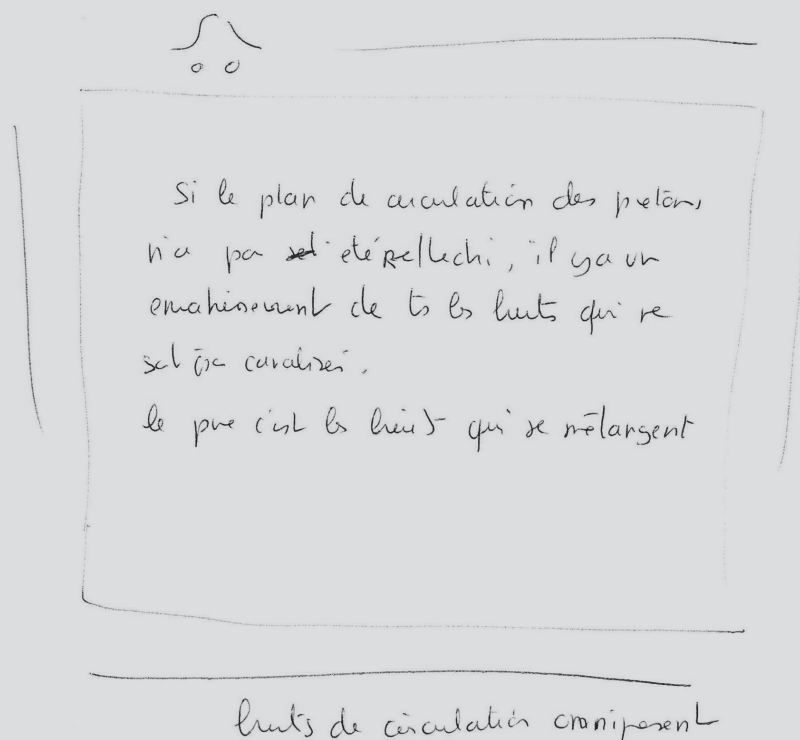 Si le plan de circulation des pietons
n'a pas été réflechi, il y a un
envahissement de ts les bruits qui ne
st pas canalisés.
le pire c'est les bruits qui se mélangent
bruits de circulation omniprésent